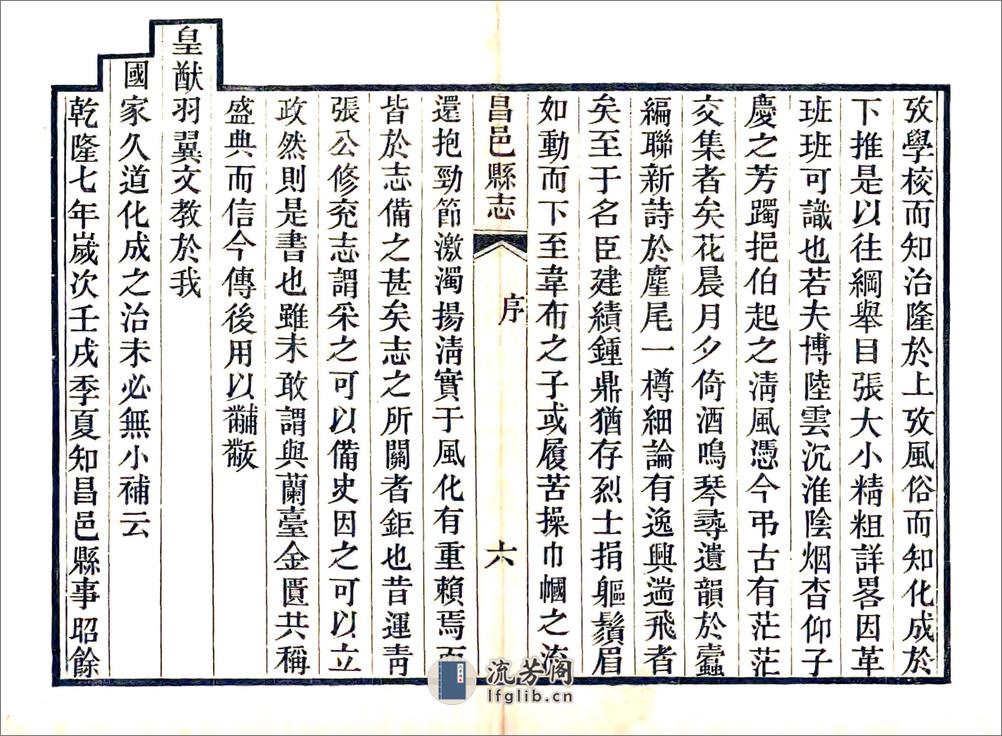 攷學校而知治隆於上攷風俗而知化成於
下推是以往綱舉目張大小精粗詳畧因革
班班可識也若夫博陸雲沉淮陰烟杳仰子
慶之芳躅挹伯起之淸風憑今弔古有茫茫
交集者矣花晨月夕倚酒鳴琴尋遺韻於蠹
編聯新詩於麈尾一樽細論有逸興遄飛者
矣至于名臣建績鍾鼎猶存烈士捐軀鬚眉
如動而下至韋布之子或履苦操巾幗之流
昌邑縣志
序
六
還抱勁節激濁揚淸實于風化有重賴焉而
皆於志備之甚矣志之所關者鉅也昔運靑
張公修兖志謂采之可以備史因之可以立
政然則是書也雖未敢謂與蘭臺金匱共稱
盛典而信今傳後用以黼黻
皇猷羽翼文教於我
國家久道化成之治未必無小補云
乾隆七年嵗次壬戌季夏知昌邑縣事昭餘
流芳阁
lfglib.cn